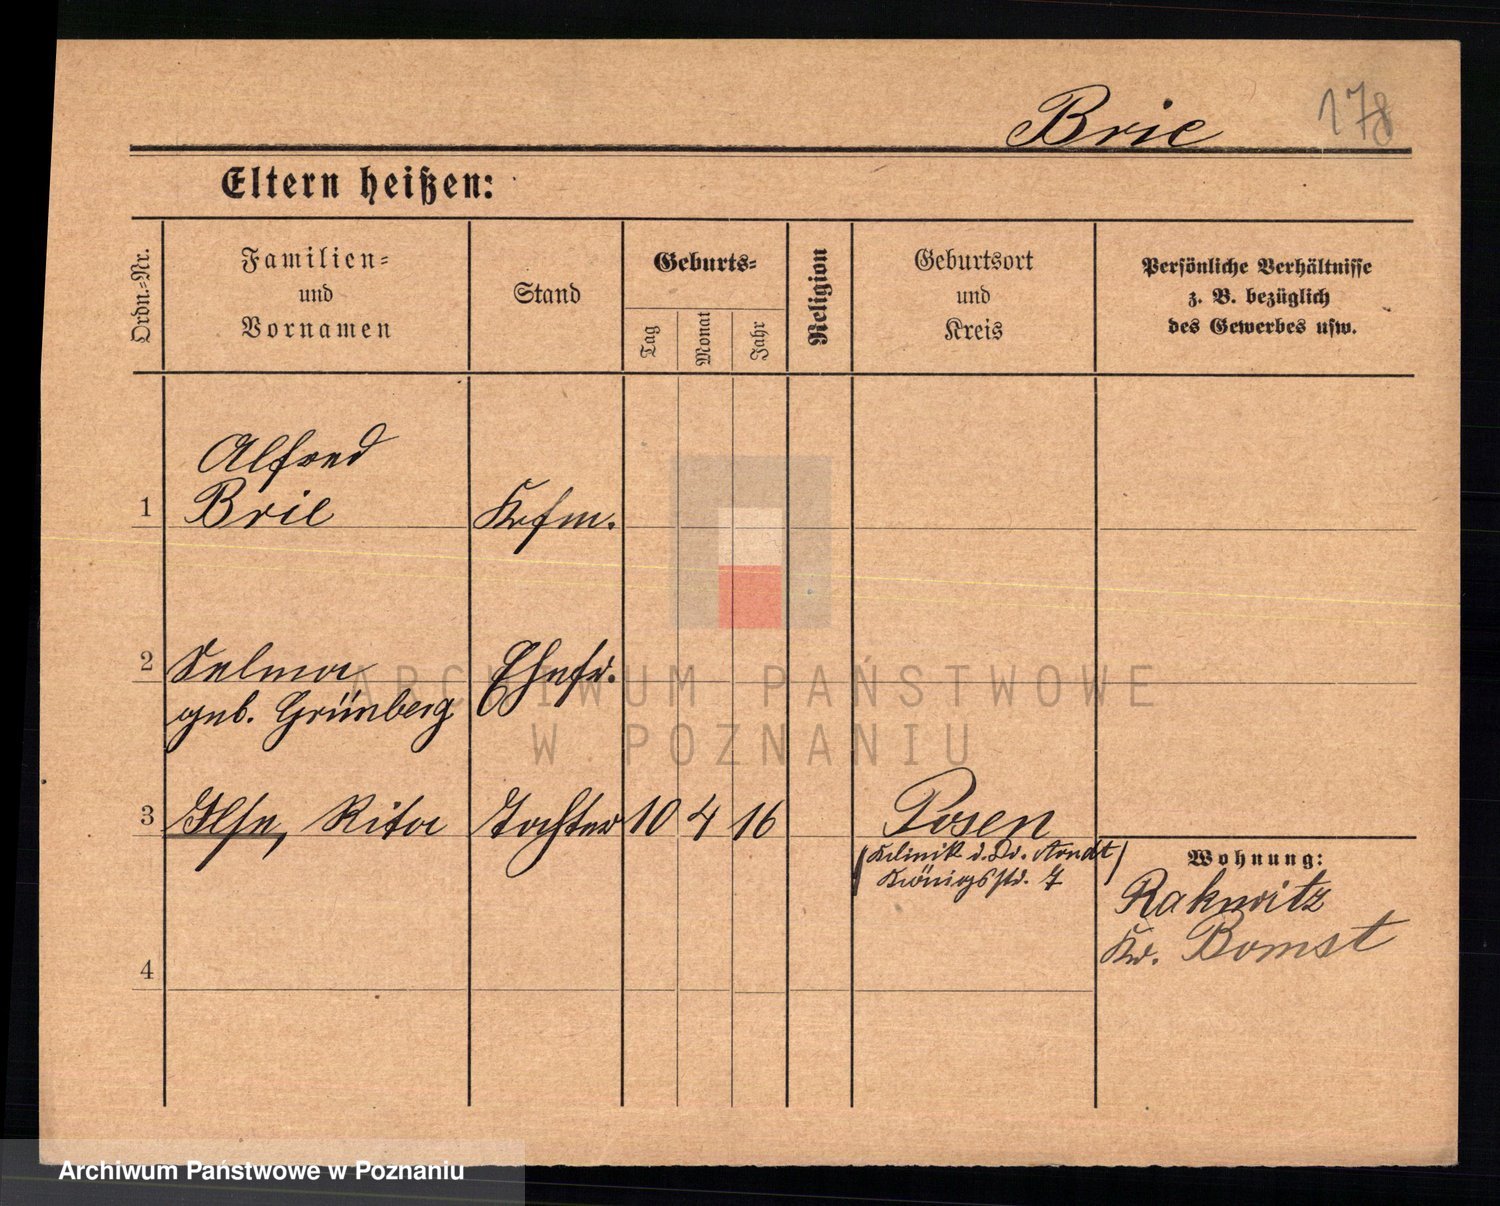 Brie 178
Eltern heißen:
Ordn.-Nr.
Familien-
und
Vornamen
Stand
Geburts-
Tag
Monat
Jahr
Religion
Geburtsort
und
Kreis
Persönliche Verhältnisse
z. B. bezüglich
des Gewerbes usw.
Alfred
1 Brie Kfm.
2 Selma Ehefr.
geb. Grünberg
3 Ilse, Rita Tochter 10 4 16 Posen
(Klinik d. Dr. Arndt)
Königsstr. 7
Wohnung:
Rakwitz
Kr. Bomst
4
ARCHIWUM PAŃSTWOWE
W POZNANIU
Archiwum Państwowe w Poznaniu